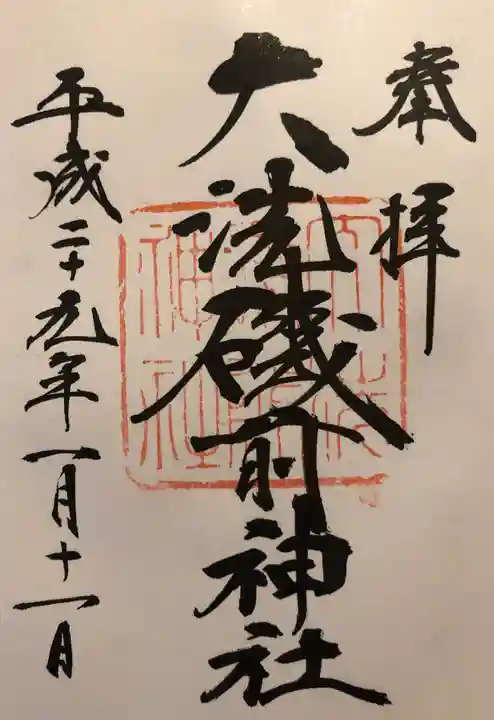 奉拝
大洗磯前神社
大洗
神社
平成二十九年一月十一日